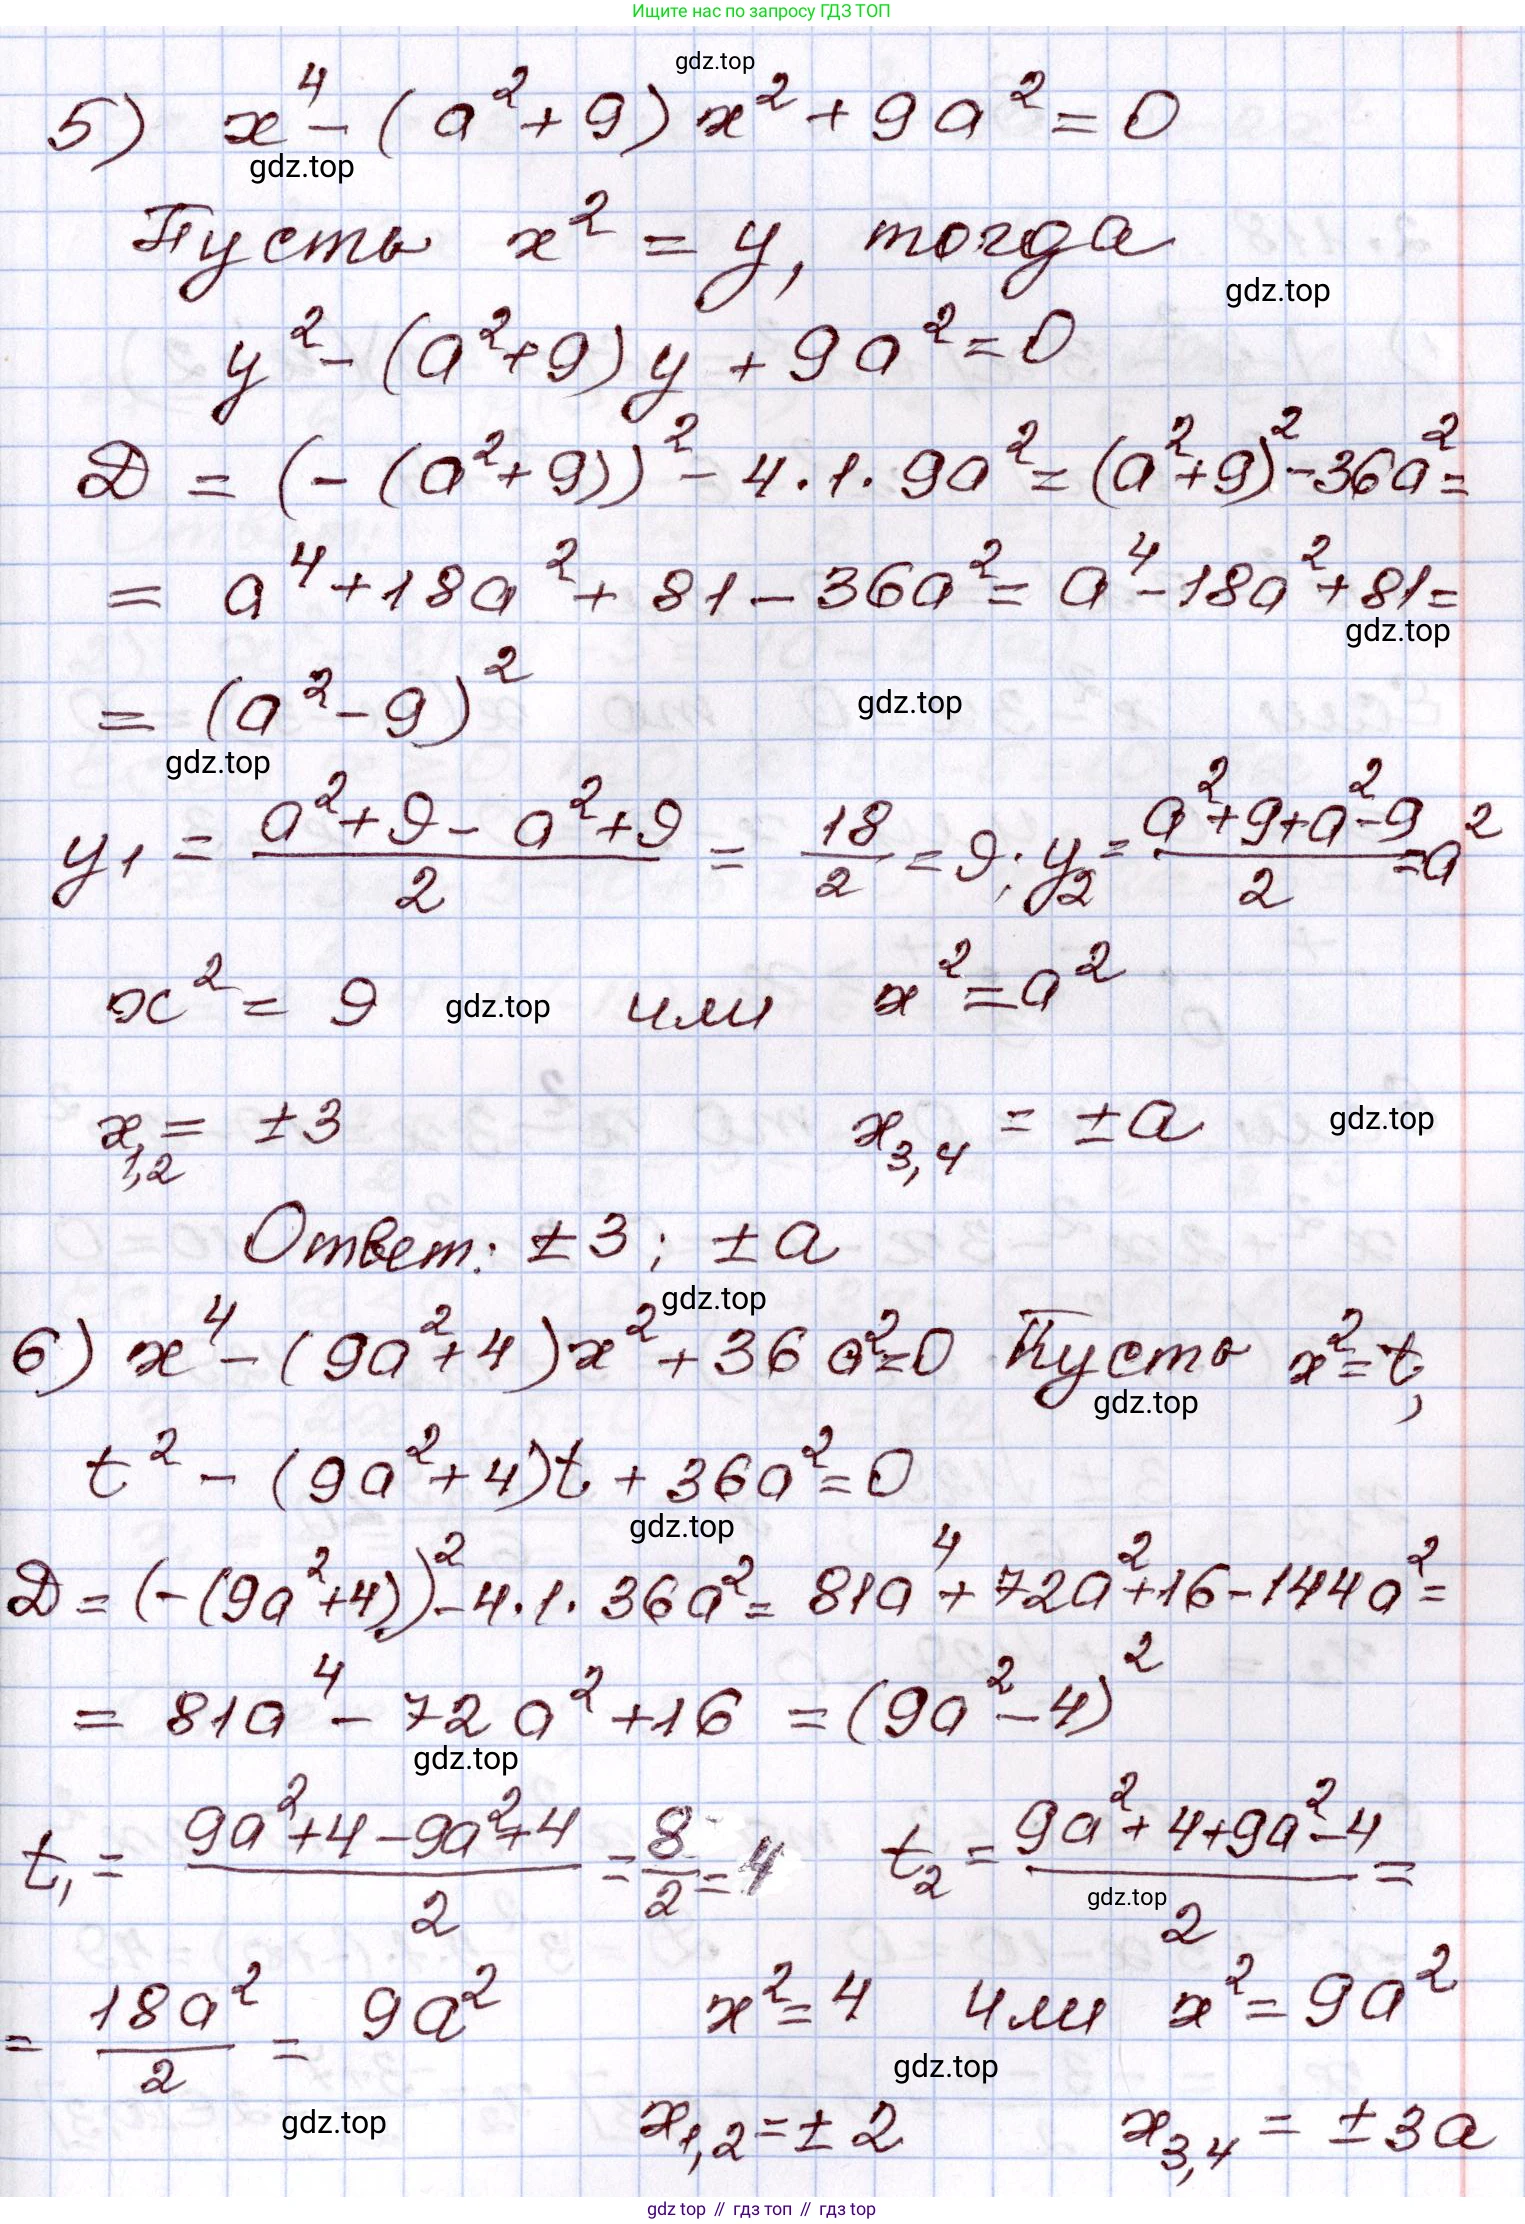 Ищите нас по запросу ГДЗ ТОП
gdz.top
5) x⁴ - (a² + 9) x² + 9a² = 0
gdz.top
Пусть x² = y, тогда
gdz.top
y² - (a² + 9) y + 9a² = 0
D = (-(a² + 9))² - 4 · 1 · 9a² = (a² + 9)² - 36a² =
= a⁴ + 18a² + 81 - 36a² = a⁴ - 18a² + 81 =
gdz.top
= (a² - 9)²
gdz.top
gdz.top
y₁ = (a² + 9 - a² + 9)/2 = 18/2 = 9; y₂ = (a² + 9 + a² - 9)/2 = a²
x² = 9 gdz.top или x² = a²
x₁,₂ = ±3 x₃,₄ = ±a gdz.top
Ответ: ±3; ±a
gdz.top
6) x⁴ - (9a² + 4) x² + 36a² = 0 Пусть x² = t,
gdz.top
t² - (9a² + 4) t + 36a² = 0
gdz.top
D = (-(9a² + 4))² - 4 · 1 · 36a² = 81a⁴ + 72a² + 16 - 144a² =
= 81a⁴ - 72a² + 16 = (9a² - 4)²
gdz.top
t₁ = (9a² + 4 - 9a² + 4)/2 = 8/2 = 4 t₂ = (9a² + 4 + 9a² - 4)/2 =
gdz.top
= 18a²/2 = 9a² x² = 4 или x² = 9a²
gdz.top
gdz.top
x₁,₂ = ±2 x₃,₄ = ±3a
gdz top // гдз топ // гдз top